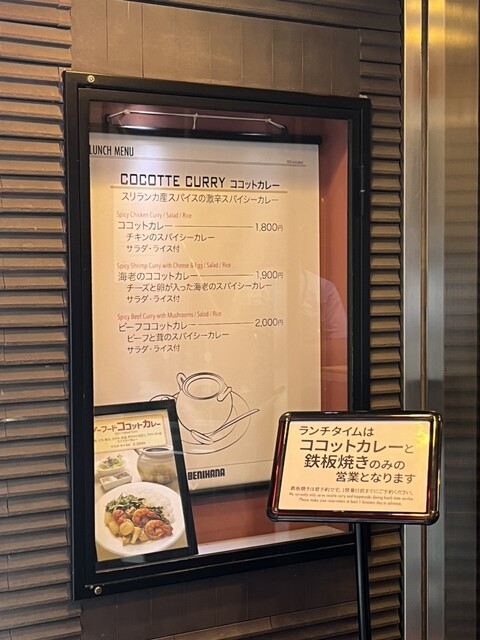 LUNCH MENU
COCOTTE CURRY ココットカレー
スリランカ産スパイスの激辛スパイシーカレー
Spicy Chicken Curry / Salad / Rice
ココットカレー 1,800円
チキンのスパイシーカレー
サラダ・ライス付
Spicy Shrimp Curry with Cheese & Egg / Salad / Rice
海老のココットカレー 1,900円
チーズと卵が入った海老のスパイシーカレー
サラダ・ライス付
Spicy Beef Curry with Mushrooms / Salad / Rice
ビーフココットカレー 2,000円
ビーフと茸のスパイシーカレー
サラダ・ライス付
BENIHANA
ーフードココットカレー
ランチタイムは
ココットカレーと
鉄板焼きのみの
営業となります
鉄板焼きは要予約です。1営業日前までにご予約ください。